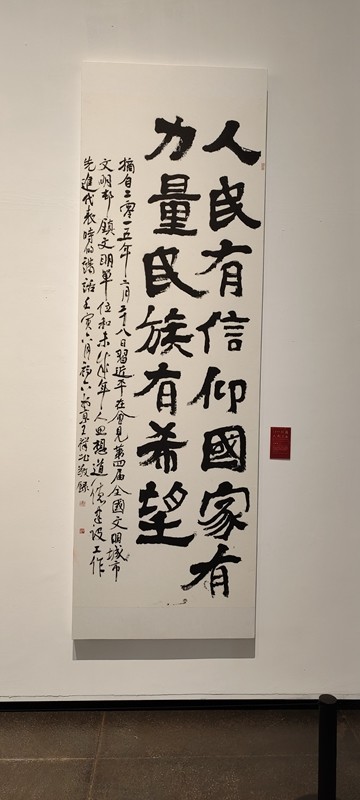 人民有信仰國家有
力量民族有希望
摘自二零一五年二月二十八日習近平在會見第四届全國文明城市
文明村鎮文明單位和未成年人思想道德建設工作
先進代表時的講話壬寅六月初六